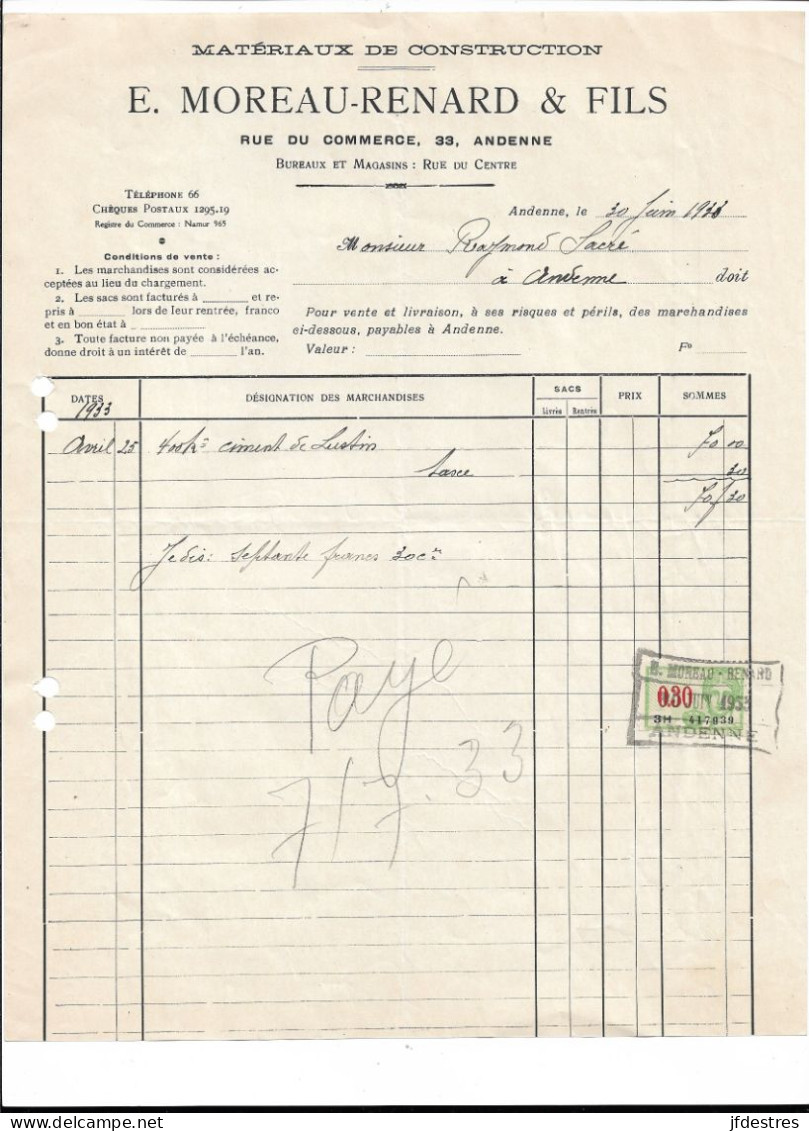 MATÉRIAUX DE CONSTRUCTION
E. MOREAU-RENARD & FILS
RUE DU COMMERCE, 33, ANDENNE
BUREAUX ET MAGASINS : RUE DU CENTRE
TÉLÉPHONE 66
CHÈQUES POSTAUX 1295.19
Registre du Commerce : Namur 965
Andenne, le 30 Juin 1933
Monsieur Raymond Sacré
à Andenne doit
Conditions de vente :
1. Les marchandises sont considérées ac-
ceptées au lieu du chargement.
2. Les sacs sont facturés à et re-
pris à lors de leur rentrée, franco
et en bon état à
3. Toute facture non payée à l'échéance,
donne droit à un intérêt de l'an.
Pour vente et livraison, à ses risques et périls, des marchandises
ci-dessous, payables à Andenne.
Valeur : Fs
DATES DÉSIGNATION DES MARCHANDISES SACS PRIX SOMMES
Livrés Rentrés
1933
Avril 25 400 ks ciment de Lustin 70 00
taxe 30
70 30
Je dis : septante francs 30 cs
Payé
7/7.33
E. MOREAU - RENARD
030 JUIN 1933
3H 417939
ANDENNE
jfdestres